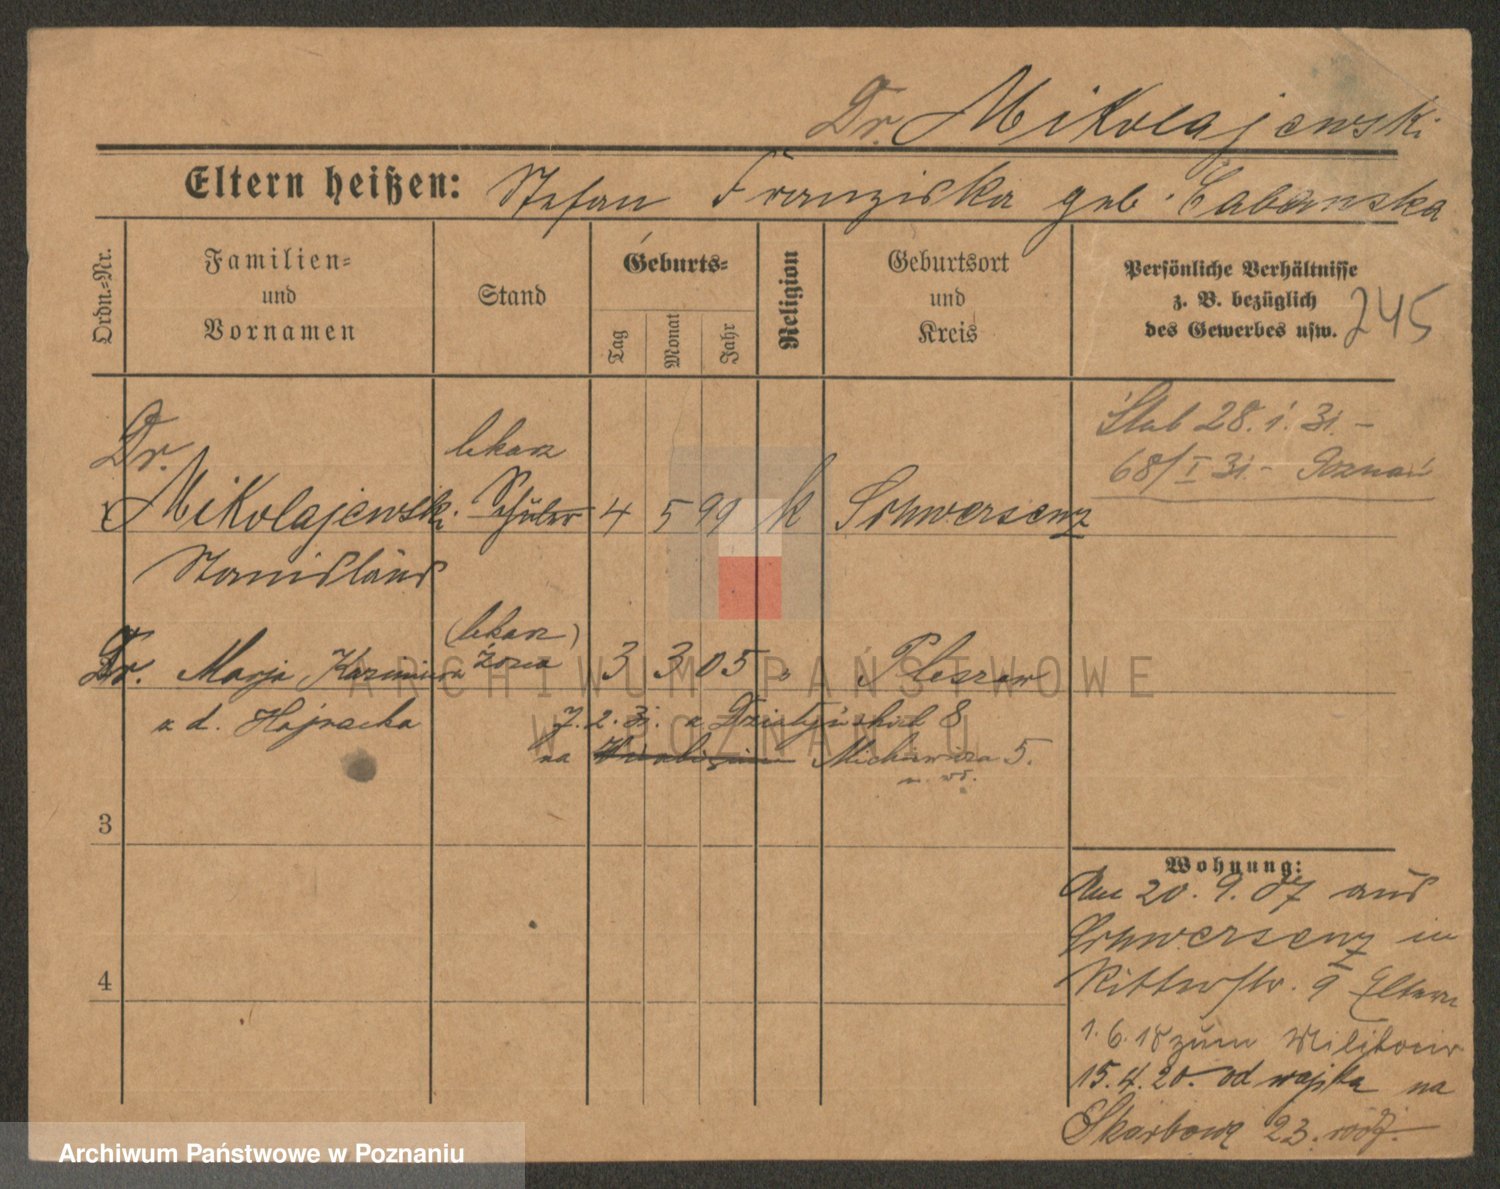 Dr. Mikolajewski
Eltern heißen: Stefan Franziska geb. Cabanska
Ordn.-Nr.
Familien-
und
Vornamen
Stand
Geburts-
Tag
Monat
Jahr
Religion
Geburtsort
und
Kreis
Persönliche Verhältnisse
z. B. bezüglich
des Gewerbes usw.
245
Ślub 28. 1. 31. –
68/I 31 – Poznań
Dr. lekarz
1 Mikolajewski Schüler 4 5 99 k Schwersenz
Stanislaus
(lekarz)
Dr. Marja Kazimiera żona 3 3 05 " Pleszew
z d. Hojnacka
7. 2. 31. z 8
na Mickiewicza 5.
3
4
Wohnung:
Am 20. 9. 07 aus
Schwersenz in
Ritterstr. 9 Eltern
1. 6. 18 zum Militair
15. 4. 20. od wojska na
Skarbową 23. rodz.
ARCHIWUM PAŃSTWOWE
W POZNANIU
Archiwum Państwowe w Poznaniu